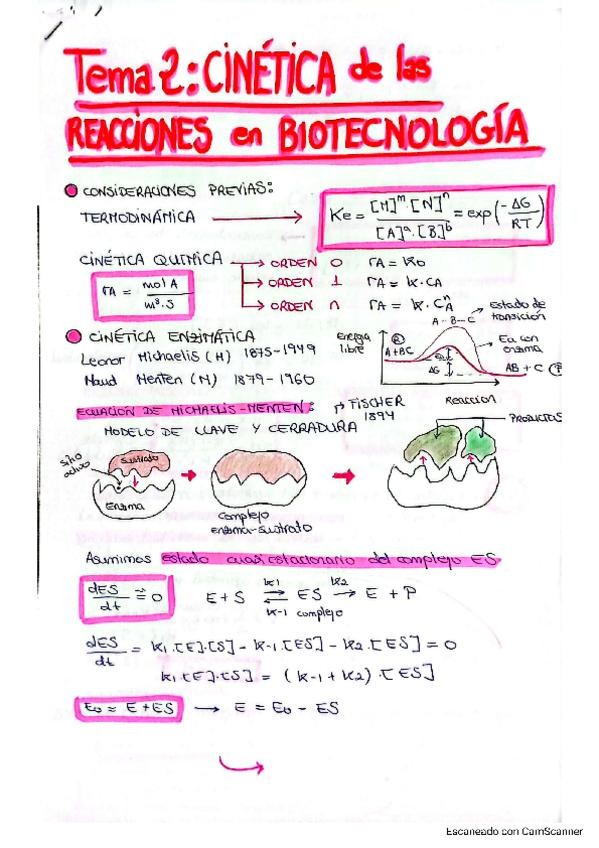 Tema 2: CINÉTICA de las
REACCIONES en BIOTECNOLOGÍA
CONSIDERACIONES PREVIAS:
TERMODINÁMICA → Ke = [M]^m·[N]^n / [A]^a·[B]^b = exp(-ΔG / RT)
CINÉTICA QUÍMICA → ORDEN 0 rA = k0
rA = mol A / m³·s → ORDEN 1 rA = k·CA
→ ORDEN n rA = k·CA^n
CINÉTICA ENZIMÁTICA
Leonor Michaelis (M) 1875-1949
Maud Menten (M) 1879-1960
energía libre
R
A+BC
ΔG
A--B--C
Estado de transición
Ea con enzima
AB + C P
Reacción
ECUACIÓN DE MICHAELIS-MENTEN:
FISCHER 1894
MODELO DE LLAVE Y CERRADURA
PRODUCTOS
sitio activo
Sustrato
Enzima
Complejo
enzima-sustrato
Asumimos estado cuasiestacionario del complejo ES
dES/dt ≅ 0 E + S k1 ⇌ k-1 ES k2 → E + P
complejo
dES/dt = k1·[E]·[S] - k-1·[ES] - k2·[ES] = 0
k1·[E]·[S] = (k-1 + k2)·[ES]
E0 = E + ES → E = E0 - ES
Escaneado con CamScanner